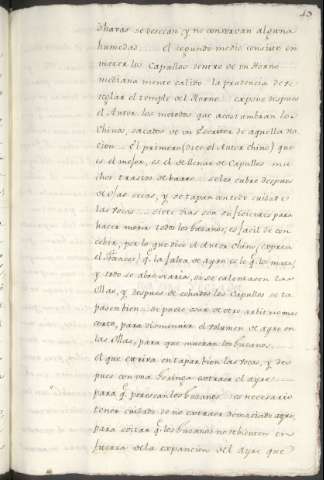 13
dharas se desecan, y no conservan alguna
humedad..... el segundo medio consiste en
meter los Capullos dentro de un Horno
medianamente calido la prudencia de re-
reglar el temple del Horno... expone despues
el Autor los metodos que acostumbran los
Chinos, sacados de un Escritor de aquella Na-
cion... El primero (dice el Autor chino) que
es el mejor, es el de llenar de Capullos mu-
chos trastos de barro... se les cubre despues
de ojas secas, y se tapan con todo cuidado
las bocas.... siete dias son suficientes para
hacer morir todos los busanos, es facil de con-
cebir, por lo que dice el Autor Chino, expresa
el frances) q. la falta de ayre es lo q. los mata,
y todo se abreviaria, si se calentasen las
ollas, y despues de echados los Capullos se ta-
pasen bien... se puede usar de otro artificio mas
corto, para disminuir el volumen de ayre en
las ollas, para que mueran los busanos.....
el que estriva en tapar bien las bocas, y des-
pues con una xeringa extraer el ayre.....
para q. perezcan los busanos.... es necesario
tener cuidado de no extraer demasiado ayre,
para evitar q. los busanos no rebienten en
fuerza de la expancion del ayre que